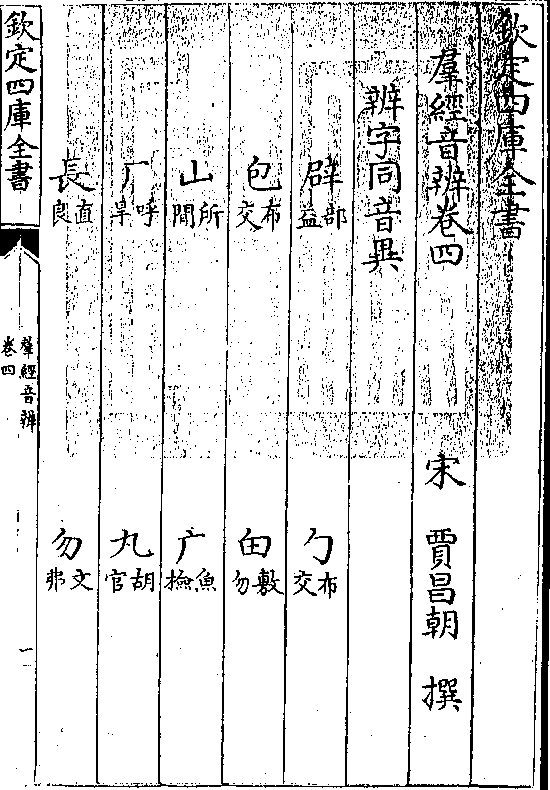 欽定四庫全書
羣經音辨卷四 宋 賈昌朝 撰
辨字同音異
辟部益 勹布交
包布交 甶敷勿
山所閒 广魚檢
厂呼旱 丸胡官
長直良 勿文弗
欽定四庫全書
羣經音辨
卷四
一